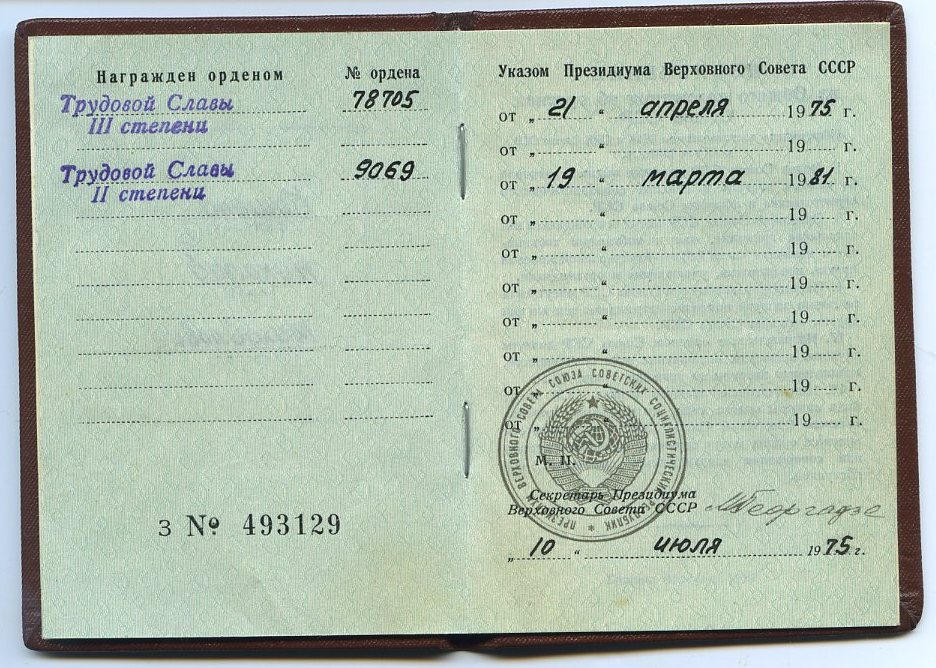 Награжден орденом № ордена
Трудовой Славы 78705
III степени
Трудовой Славы 9069
II степени
З № 493129
Указом Президиума Верховного Совета СССР
от „ 21 “ апреля 1975 г.
от „ “ 19 г.
от „ 19 “ марта 1981 г.
от „ “ 19 г.
от „ “ 19 г.
от „ “ 19 г.
от „ “ 19 г.
от „ “ 19 г.
от „ “ 19 г.
от „ “ 19 г.
ПРЕЗИДИУМ ВЕРХОВНОГО СОВЕТА СОЮЗА СОВЕТСКИХ СОЦИАЛИСТИЧЕСКИХ РЕСПУБЛИК *
М. П.
Секретарь Президиума
Верховного Совета СССР МГеоргадзе
„ 10 “ июля 1975 г.